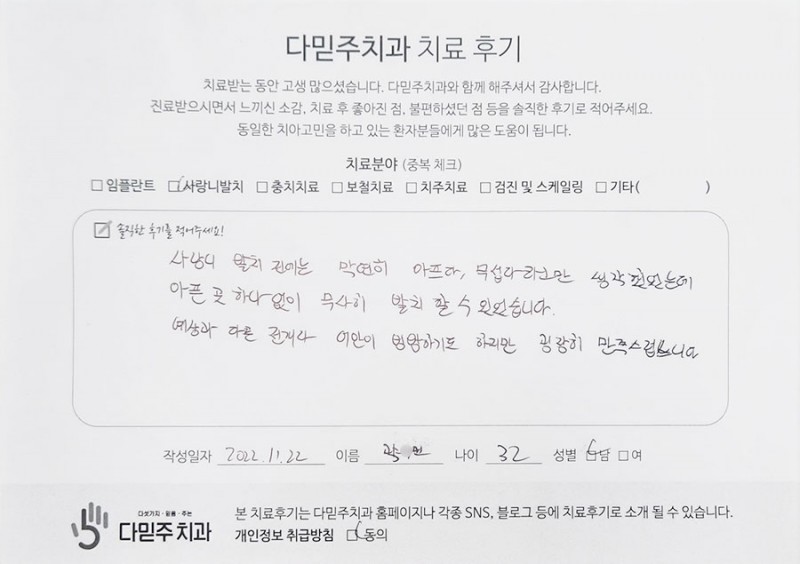 다믿주치과 치료 후기
치료받는 동안 고생 많으셨습니다. 다믿주치과와 함께 해주셔서 감사합니다.
진료받으시면서 느끼신 소감, 치료 후 좋아진 점, 불편하셨던 점 등을 솔직한 후기로 적어주세요.
동일한 치아고민을 하고 있는 환자분들에게 많은 도움이 됩니다.
치료분야 (중복 체크)
□ 임플란트 □ 사랑니발치 □ 충치치료 □ 보철치료 □ 치주치료 □ 검진 및 스케일링 □ 기타( )
솔직한 후기를 적어주세요!
사랑니 발치 전에는 막연히 아프다, 무섭다라고만 생각
아픈 곳 하나 없이 무사히 발치 할 수 있었습니다.
예상과 다른 하지만 굉장히 만족스럽습니다
작성일자 2022.11.22 이름 곽 민 나이 32 성별 □남 □여
다섯가지·믿음·주는
다믿주치과
본 치료후기는 다믿주치과 홈페이지나 각종 SNS, 블로그 등에 치료후기로 소개 될 수 있습니다.
개인정보 취급방침 □동의